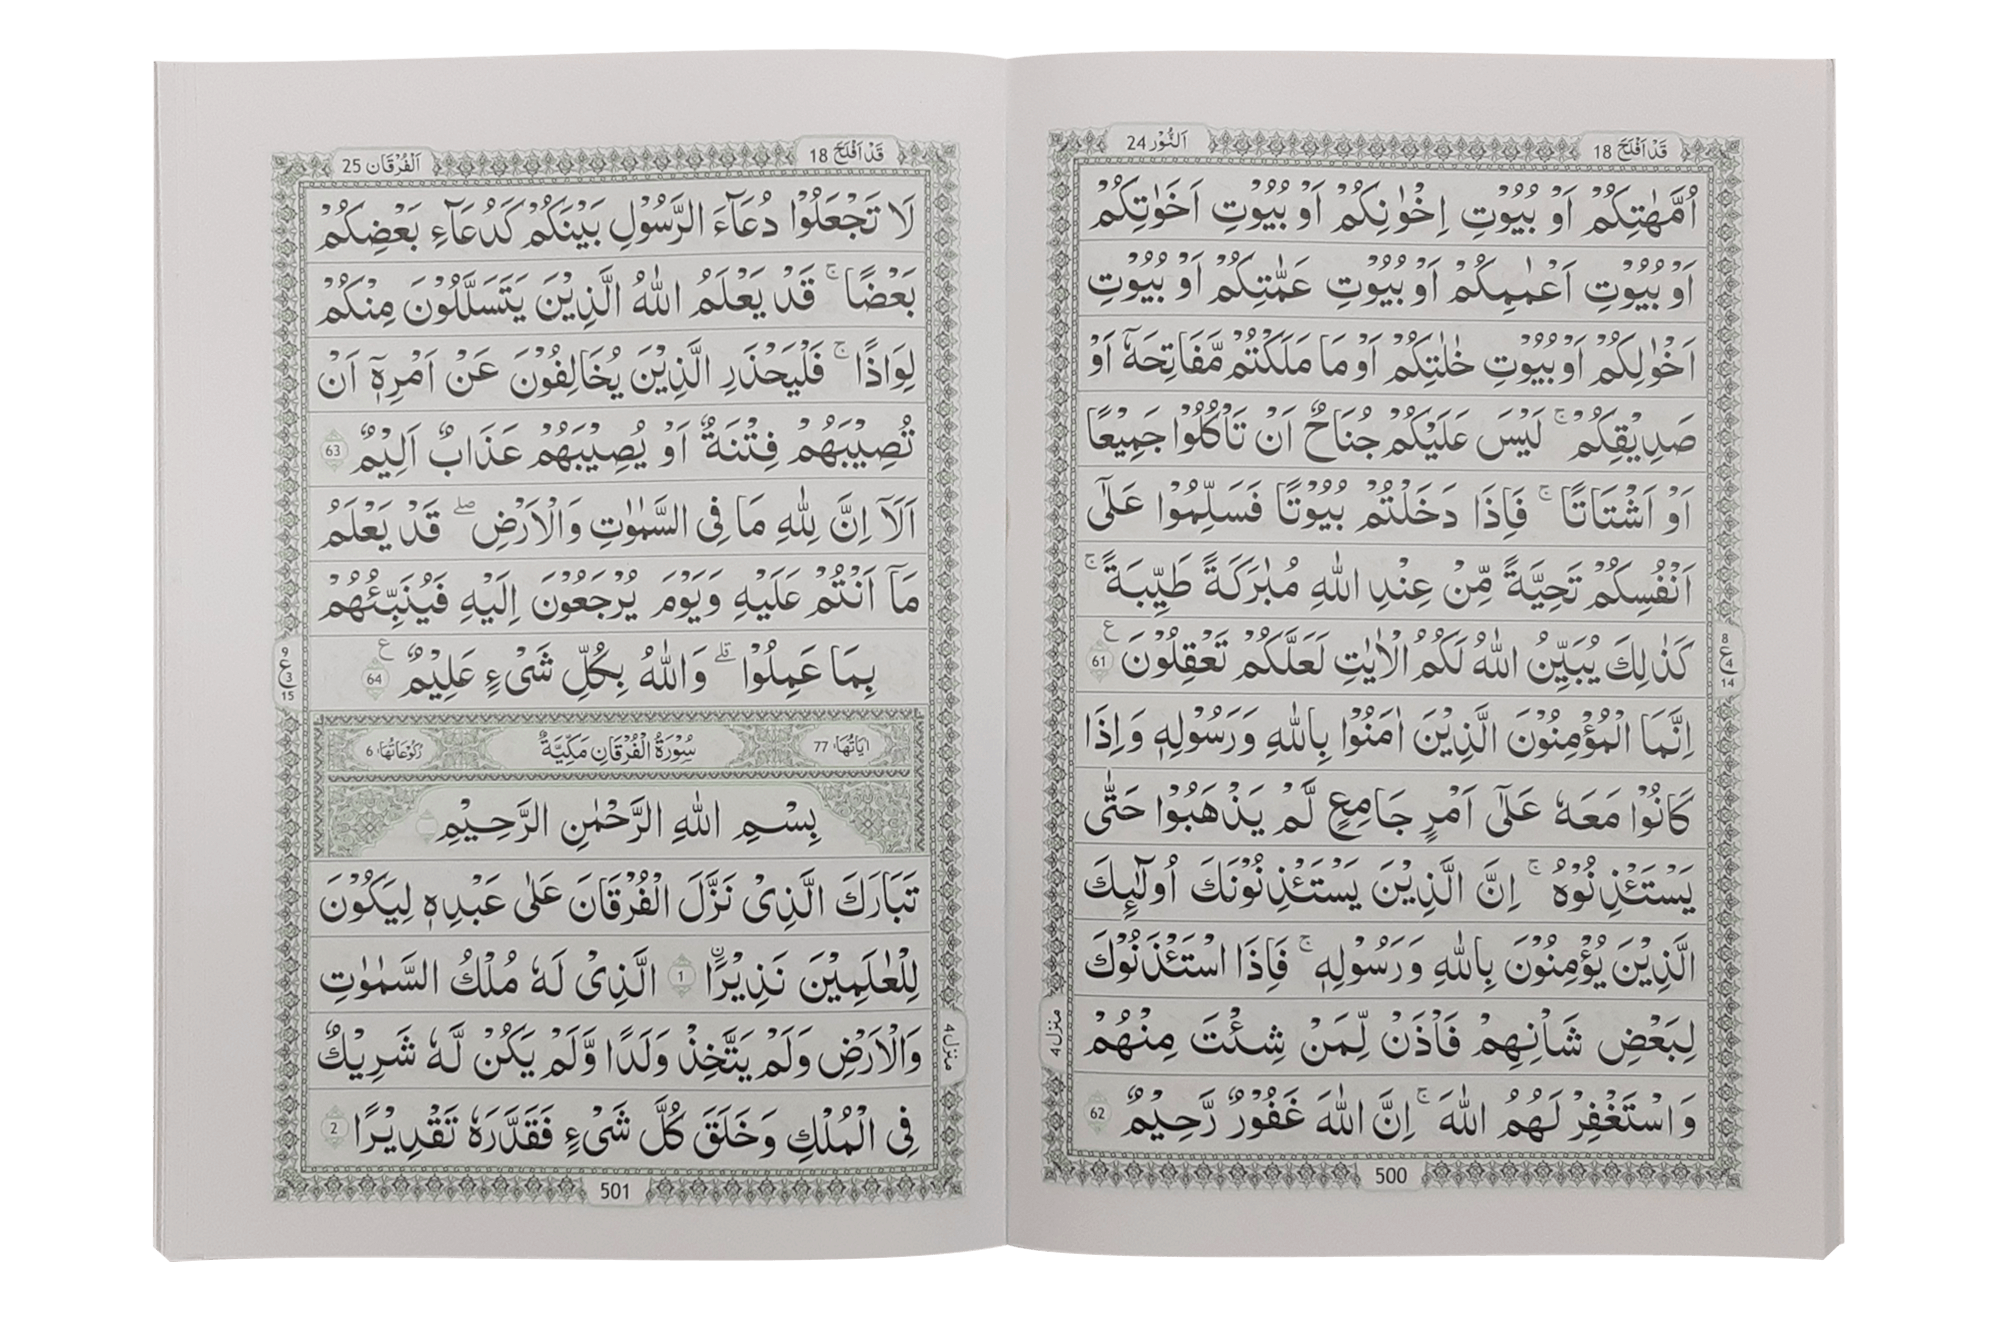 قَدْ اَفْلَحَ 18
اَلنُّوْر 24
اُمَّهٰتِكُمْ اَوْ بُيُوْتِ اِخْوَانِكُمْ اَوْ بُيُوْتِ اَخَوٰتِكُمْ
اَوْ بُيُوْتِ اَعْمَامِكُمْ اَوْ بُيُوْتِ عَمّٰتِكُمْ اَوْ بُيُوْتِ
اَخْوَالِكُمْ اَوْ بُيُوْتِ خٰلٰتِكُمْ اَوْ مَا مَلَكْتُمْ مَّفَاتِحَهٗۤ اَوْ
صَدِيْقِكُمْ ۚ لَيْسَ عَلَيْكُمْ جُنَاحٌ اَنْ تَاْكُلُوْا جَمِيْعًا
اَوْ اَشْتَاتًا ۚ فَاِذَا دَخَلْتُمْ بُيُوْتًا فَسَلِّمُوْا عَلٰۤى
اَنْفُسِكُمْ تَحِيَّةً مِّنْ عِنْدِ اللّٰهِ مُبٰرَكَةً طَيِّبَةً ۚ
كَذٰلِكَ يُبَيِّنُ اللّٰهُ لَكُمُ الْاٰيٰتِ لَعَلَّكُمْ تَعْقِلُوْنَ ع 61
8 ع 4 14
اِنَّمَا الْمُؤْمِنُوْنَ الَّذِيْنَ اٰمَنُوْا بِاللّٰهِ وَرَسُوْلِهٖ وَاِذَا
كَانُوْا مَعَهٗ عَلٰۤى اَمْرٍ جَامِعٍ لَّمْ يَذْهَبُوْا حَتّٰى
يَسْتَئْذِنُوْهُ ۚ اِنَّ الَّذِيْنَ يَسْتَئْذِنُوْنَكَ اُولٰٓئِكَ
الَّذِيْنَ يُؤْمِنُوْنَ بِاللّٰهِ وَرَسُوْلِهٖ ۚ فَاِذَا اسْتَئْذَنُوْكَ
لِبَعْضِ شَاْنِهِمْ فَاْذَنْ لِّمَنْ شِئْتَ مِنْهُمْ
منزل 4
وَاسْتَغْفِرْ لَهُمُ اللّٰهَ ۚ اِنَّ اللّٰهَ غَفُوْرٌ رَّحِيْمٌ 62
500
قَدْ اَفْلَحَ 18
اَلْفُرْقَان 25
لَا تَجْعَلُوْا دُعَآءَ الرَّسُوْلِ بَيْنَكُمْ كَدُعَآءِ بَعْضِكُمْ
بَعْضًا ۚ قَدْ يَعْلَمُ اللّٰهُ الَّذِيْنَ يَتَسَلَّلُوْنَ مِنْكُمْ
لِوَاذًا ۚ فَلْيَحْذَرِ الَّذِيْنَ يُخَالِفُوْنَ عَنْ اَمْرِهٖۤ اَنْ
تُصِيْبَهُمْ فِتْنَةٌ اَوْ يُصِيْبَهُمْ عَذَابٌ اَلِيْمٌ 63
اَلَاۤ اِنَّ لِلّٰهِ مَا فِى السَّمٰوٰتِ وَالْاَرْضِ ۖ قَدْ يَعْلَمُ
مَاۤ اَنْتُمْ عَلَيْهِ وَيَوْمَ يُرْجَعُوْنَ اِلَيْهِ فَيُنَبِّئُهُمْ
بِمَا عَمِلُوْا ۗ وَاللّٰهُ بِكُلِّ شَىْءٍ عَلِيْمٌ ع 64
9 ع 3 15
اٰيَاتُهَا، 77 سُوْرَةُ الْفُرْقَانِ مَكِّيَّةٌ رُكُوْعَاتُهَا، 6
بِسْمِ اللّٰهِ الرَّحْمٰنِ الرَّحِيْمِ
تَبَارَكَ الَّذِىْ نَزَّلَ الْفُرْقَانَ عَلٰى عَبْدِهٖ لِيَكُوْنَ
لِلْعٰلَمِيْنَ نَذِيْرًا 1 الَّذِىْ لَهٗ مُلْكُ السَّمٰوٰتِ
وَالْاَرْضِ وَلَمْ يَتَّخِذْ وَلَدًا وَّلَمْ يَكُنْ لَّهٗ شَرِيْكٌ
منزل 4
فِى الْمُلْكِ وَخَلَقَ كُلَّ شَىْءٍ فَقَدَّرَهٗ تَقْدِيْرًا 2
501